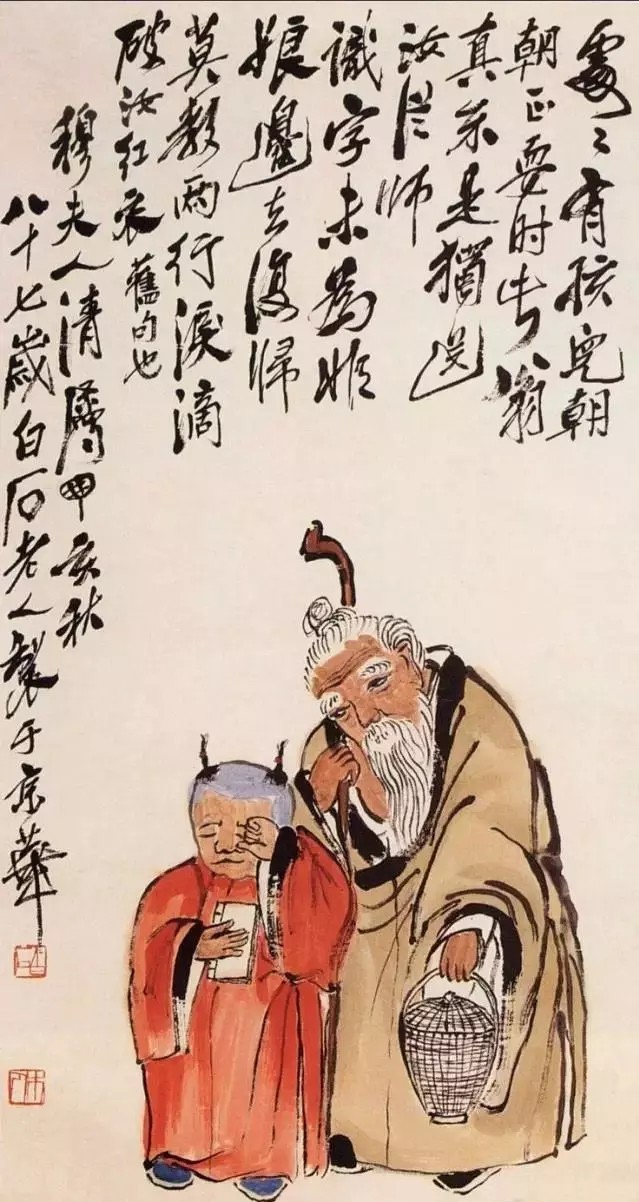 處〻有孩兒朝
朝正耍時此翁
真不是獨送
汝從師
識字未為非
娘邊去復歸
莫教兩行淚滴
破汝紅衣舊句也
穆夫人清屬亥秋
八十七歲白石老人製于京華